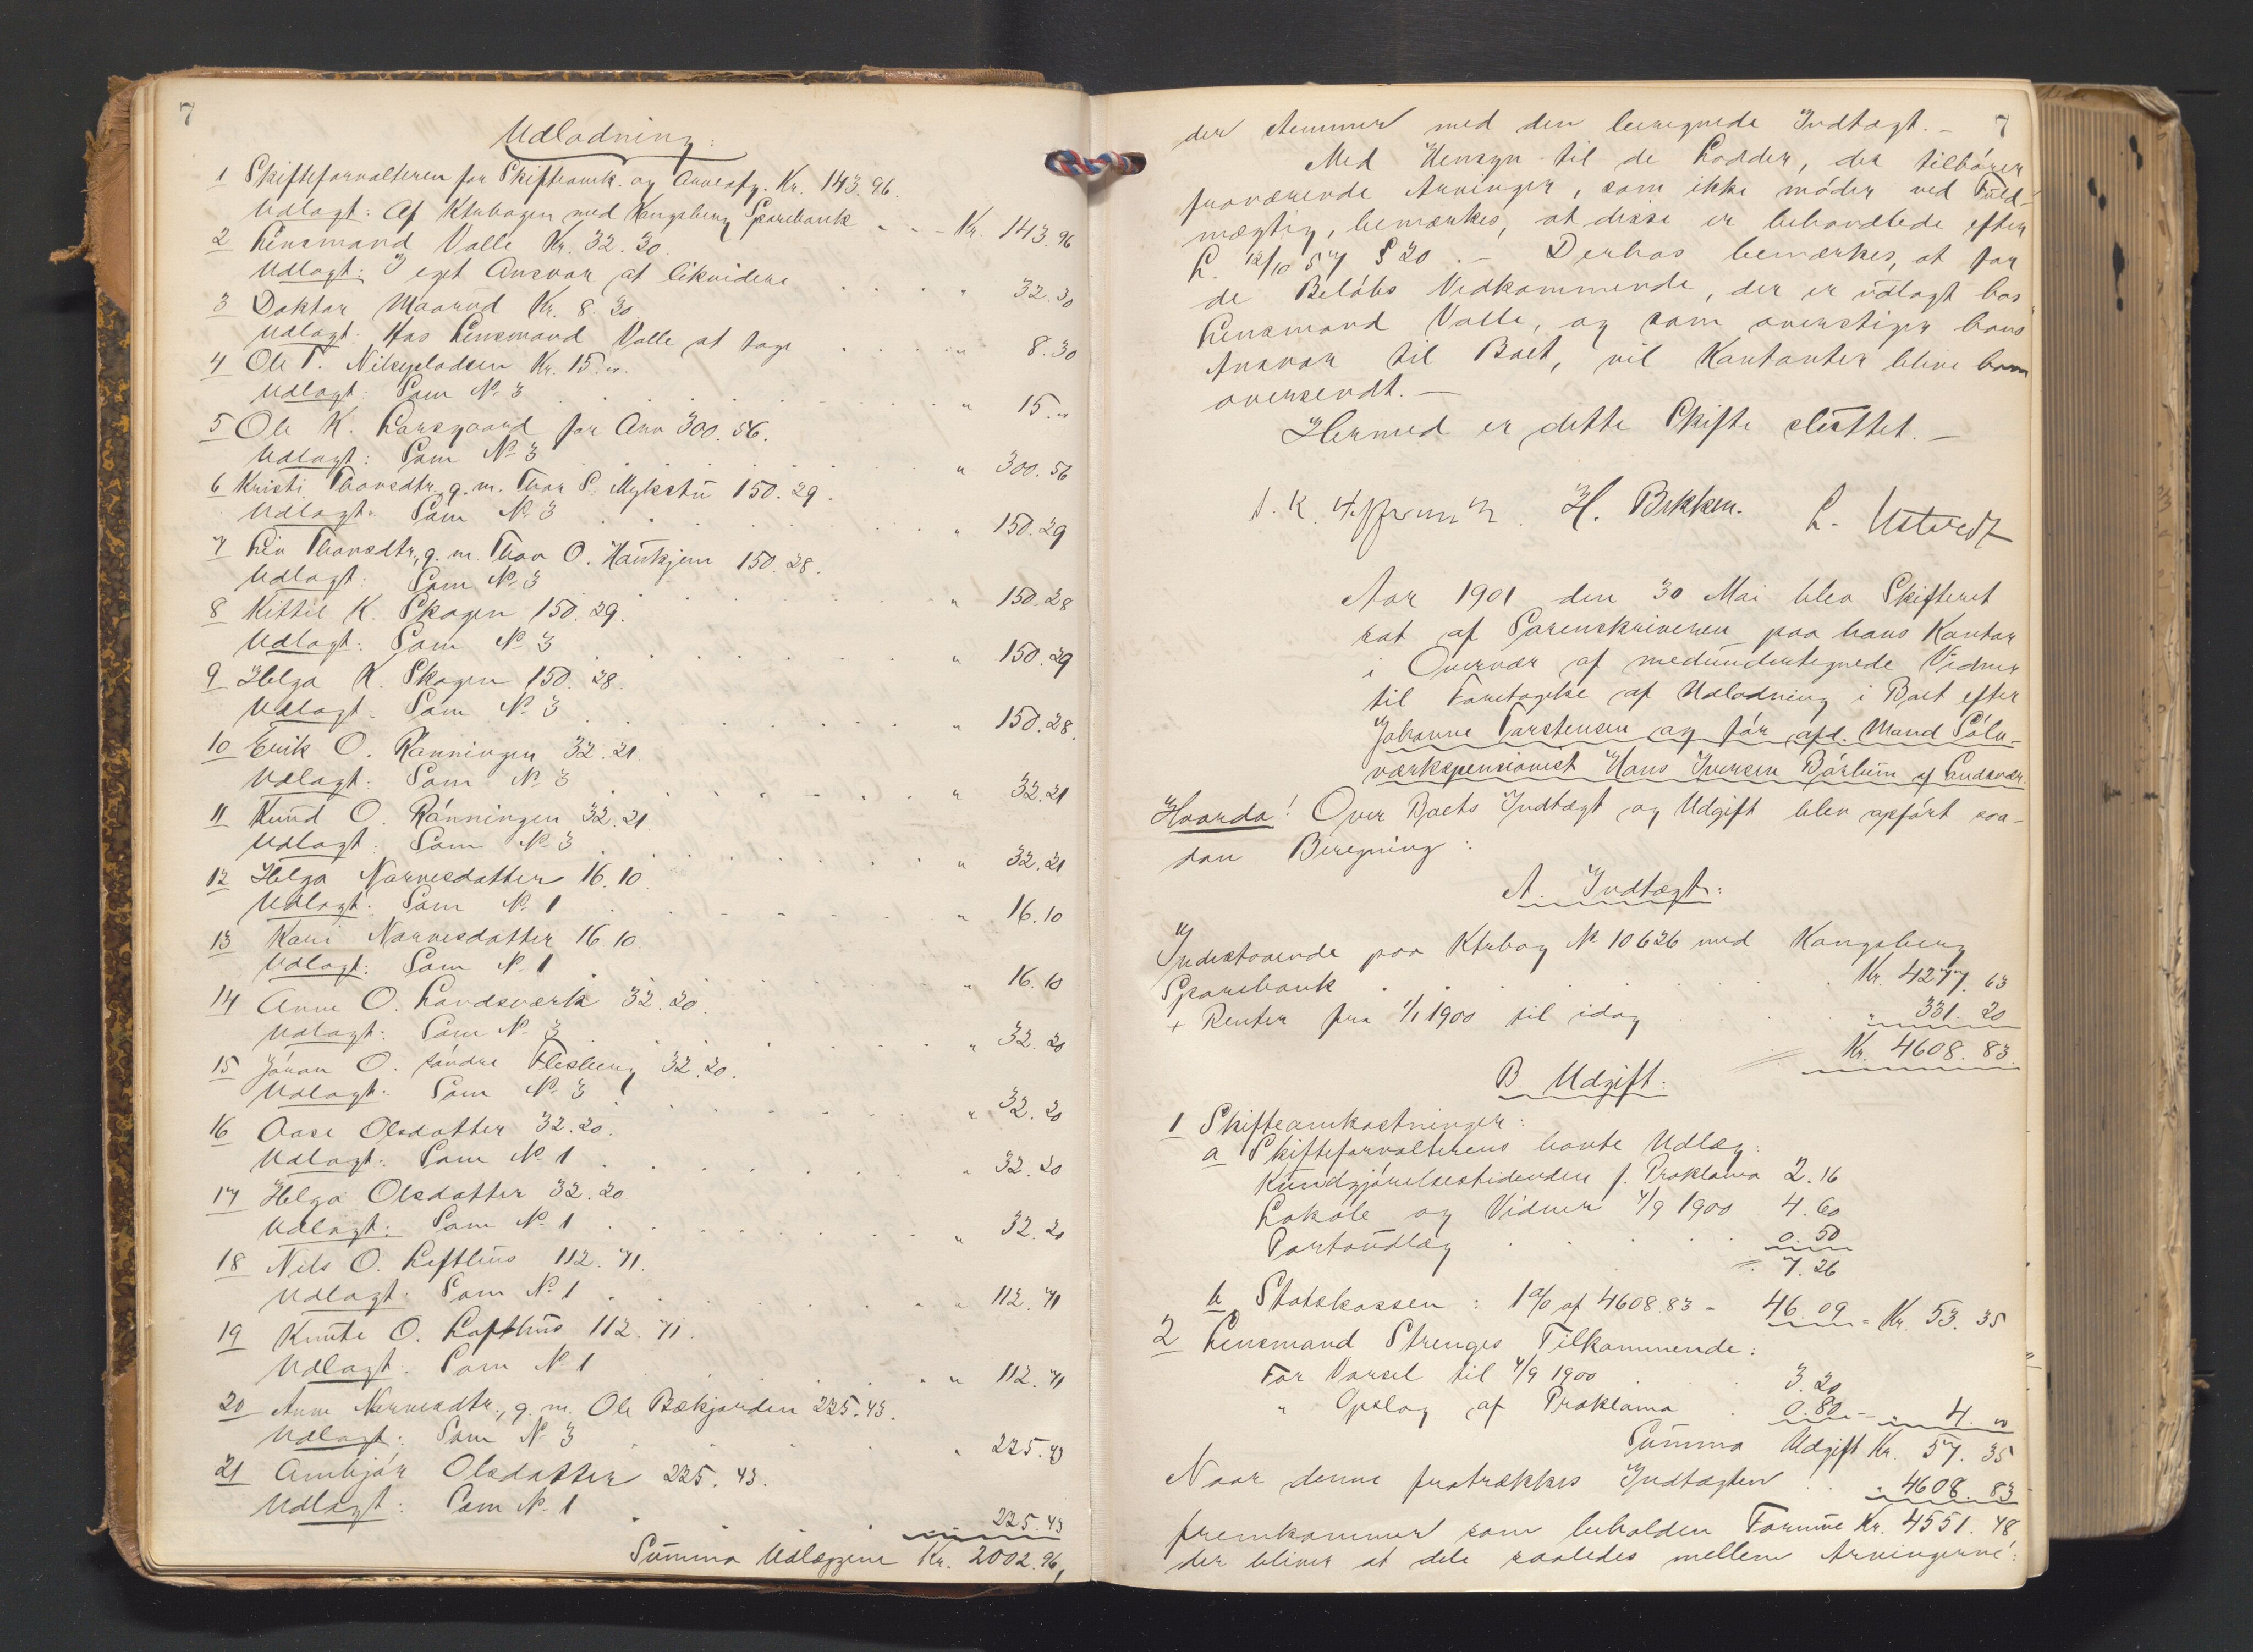 7
Udlodning:
1 Skifteforvalteren for Skifteomk. og Arveafg. Kr. 143.96.
Udlagt: Af Ktrbogen med Kongsberg Sparebank - - - Kr. 143.96
2 Lensmand Valle Kr. 32.30.
Udlagt: I eget Ansvar at likvidere . . . . " 32.30
3 Doktor Maarud Kr. 8.30
Udlagt: Hos Lensmand Valle at tage . . . . " 8.30
4 Ole T. Kr. 15."
Udlagt: Som No 3 . . . . " 15."
5 Ole K. Larsgaard for Arv 300.56.
Udlagt: Som No 3 . . . . " 300.56
6 Kristi Thorsdtr. g. m. Thor S. Mykstu 150.29.
Udlagt: Som No 3 . . . . " 150.29
7 Liv Thorsdtr, g. m. Thor O. Haukjem 150.28.
Udlagt: Som No 3 . . . . " 150.28
8 Kittil K. Skogen 150.29.
Udlagt: Som No 3 . . . . " 150.29
9 Helga K. Skogen 150.28.
Udlagt: Som No 3 . . . . " 150.28.
10 Erik O. Rønningen 32.21
Udlagt: Som No 3 . . . . " 32.21
11 Knud O. Rønningen 32.21.
Udlagt: Som No 3 . . . . " 32.21
12 Helga Narvesdatter 16.10
Udlagt: Som No 1 . . . . " 16.10
13 Kari Narvesdatter 16.10.
Udlagt: Som No 1 . . . . " 16.10
14 Anne O. Landsværk 32.20.
Udlagt: Som No 3 . . . . " 32.20
15 Jøran O. søndre Flesberg 32.20.
Udlagt: Som No 3 . . . . " 32.20
16 Aase Olsdatter 32.20.
Udlagt: Som No 1 . . . . " 32.20
17 Helga Olsdatter 32.20
Udlagt: Som No 1 . . . . " 32.20
18 Nils O. Lofthus 112.71.
Udlagt: Som No 1 . . . . " 112.71
19 Knute O. Lofthus 112.71.
Udlagt: Som No 1 . . . . " 112.71
20 Anne Narvesdtr., g. m. Ole Bekjorden 225.43.
Udlagt: Som No 3 . . . . " 225.43
21 Ambjør Olsdatter 225.43.
Udlagt: Som No 1 . . . . 225.43
Summa Udlæggene Kr. 2002.96,
7
der stemmer med den beregnede Indtægt. -
Med Hensyn til de Lodder, der tilhører
fraværende Arvinger, som ikke møder ved Fuld-
mægtig, bemærkes, at disse er behandlede efter
L. 12/10 57 § 20. - Derhos bemærkes, at for
de Beløbs Vedkommende, der er udlagt hos
Lensmand Valle, og som overstiger hans
Ansvar til Boet, vil Kontanter blive ham
oversendt. -
Hermed er dette Skifte sluttet. -
H. Bekken. L. Ustvedt
Aar 1901 den 30 Mai blev Skifteret
sat af Sorenskriveren paa hans Kontor
i Overvær af medundertegnede Vidner
til Foretagelse af Udlodning i Boet efter
Johanne Torstensen og før afd. Mand Sølv-
værkspensionist Hans Iversen Børtum af Landsvær.
Hvorda! Over Boets Indtægt og Udgift blev opført saa-
dan Beregning:
A. Indtægt:
Indestaaende paa Ktrbog No 10626 med Kongsberg
Sparebank . . . . Kr. 4277.63
+ Renter fra 1/1 1900 til idag . . . " 331.20
Kr. 4608.83.
B. Udgift:
1 Skifteomkostninger:
a Skifteforvalterens havte Udlæg:
Kundgjørelsestidenden f. Proklama 2.16
Lokale og Vidner 4/9 1900 4.60
Portoudlæg . . . . 0.50
= 7.26
b Statskassen: 1% af 4608.83 - 46.09 = Kr. 53.35
2 Lensmand Strenges Tilkommende:
For Varsel til 4/9 1900 . . . 3.20
" Opslag af Proklama . 0.80 - " 4. "
Summa Udgift Kr. 57.35
Naar denne fratrækkes Indtægten . . " 4608.83
fremkommer som beholden Formue Kr. 4551.48
der bliver at dele saaledes mellem Arvingerne: